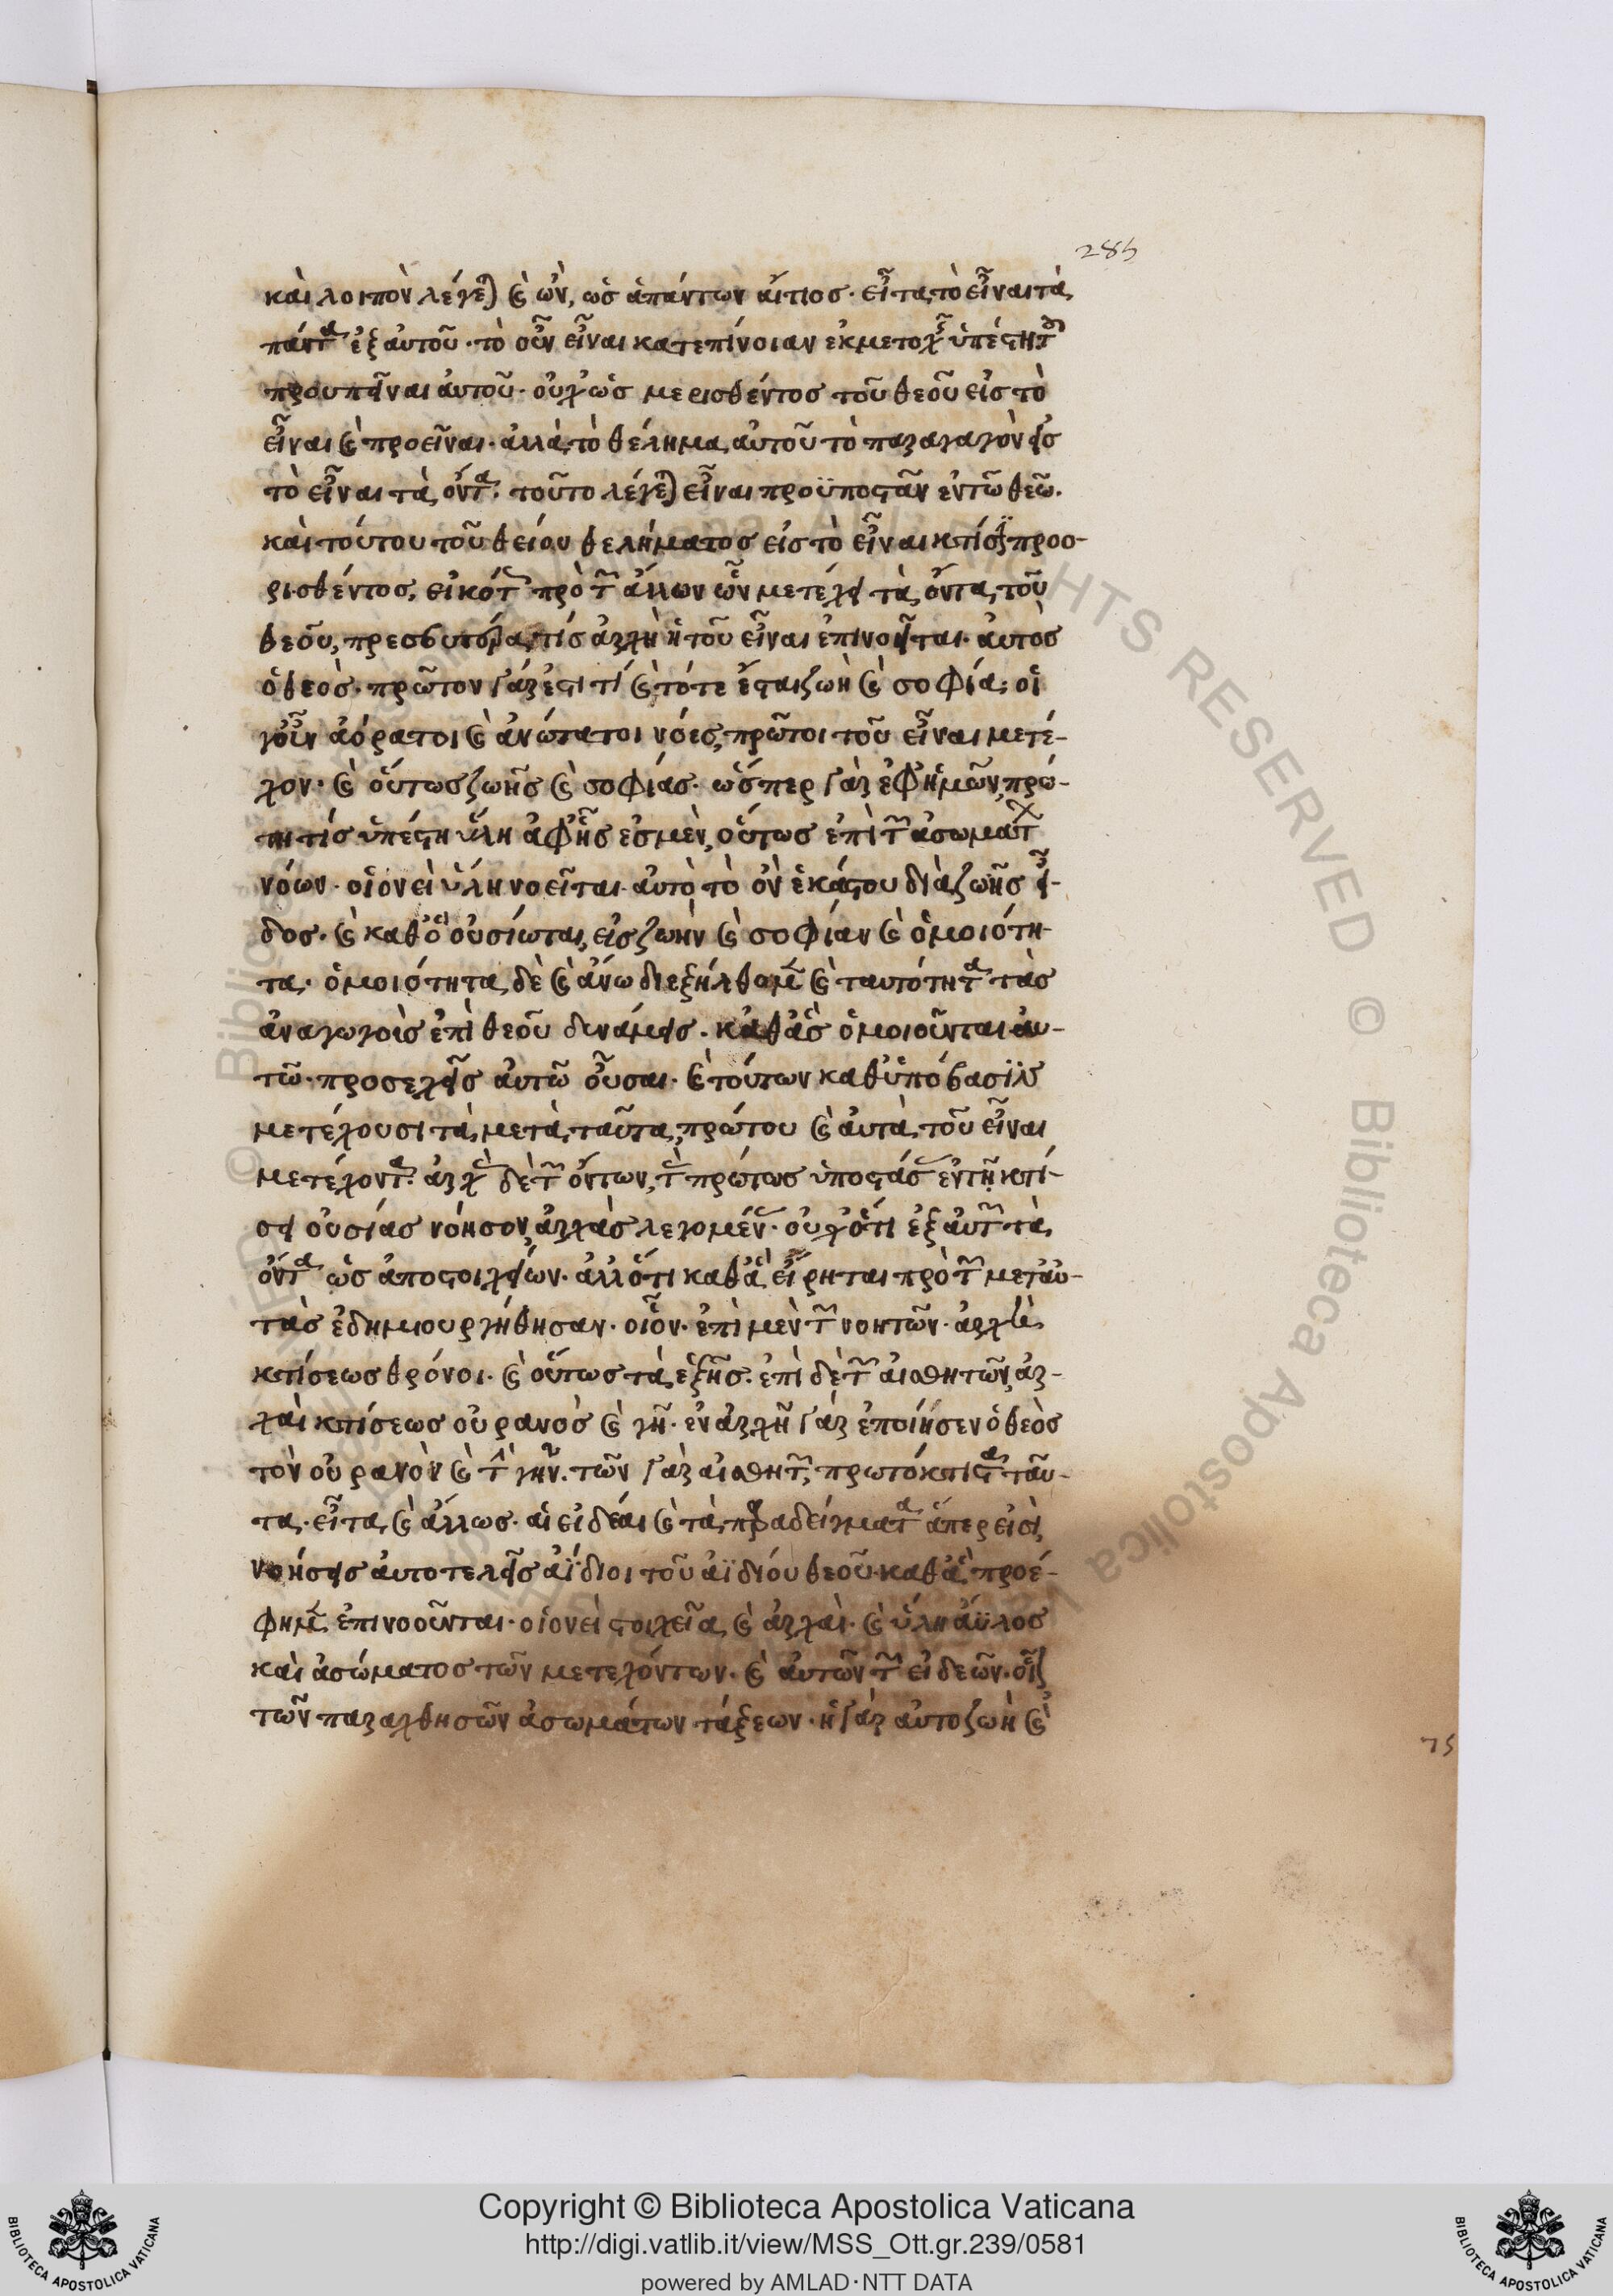 285
καὶ λοιπὸν λέγεται καὶ ὤν, ὡς ἁπάντων αἴτιος· εἶτα τὸ εἶναι τὰ
πάντα ἐξ αὐτοῦ· τὸ οὖν εἶναι κατεπίνοιαν ἐκμετοχῆς ὑπέστη τοῦ
προυπεῖναι αὐτοῦ· οὐχ ὡς μερισθέντος τοῦ θεοῦ εἰς τὸ
εἶναι καὶ προεῖναι· ἀλλὰ τὸ θέλημα αὐτοῦ τὸ παραγαγὸν εἰς
τὸ εἶναι τὰ ὄντα· τοῦτο λέγεται εἶναι προϋποστὰν ἐν τῶ θεῶ·
καὶ τούτου τοῦ θείου θελήματος εἰς τὸ εἶναι κτίσιν προο-
ρισθέντος, εἰκότως πρὸ τῶν ἄλλων ὧν μετέχει τὰ ὄντα τοῦ
θεοῦ, πρεσβυτέρα τίς ἀρχὴ ἡ τοῦ εἶναι ἐπινοεῖται· αὐτὸς
ὁ θεός· πρῶτον γάρ ἐστι τί καὶ τότε ἔσται ζωὴ καὶ σοφία; οἱ
γοῦν ἀόρατοι καὶ ἀνώτατοι νόες, πρῶτοι τοῦ εἶναι μετέ-
χον· καὶ οὕτως ζωῆς καὶ σοφίας· ὥσπερ γὰρ ἐφ ἡμῶν πρώ-
τη τίς ὑπέστη ὕλη ἀφ ἧς ἐσμὲν, οὕτως ἐπὶ τῶν ἀσωμάτων
νόων· οἱονεὶ ὕλη νοεῖται αὐτὸ τὸ ὂν ἑκάστου διὰ ζωῆς εἶ-
δος· καὶ καθ ὃ οὐσίωται, εἰς ζωὴν καὶ σοφίαν καὶ ὁμοιότη-
τα· ὁμοιότητα δὲ καὶ ἄνω διεξήλθομεν καὶ ταυτότητα τὰς
ἀναγωγοὺς ἐπὶ θεοῦ δυνάμεις· καθ ἃς ὁμοιοῦνται αὐ-
τῶ· προσεχεῖς αὐτῶ οὖσαι· καὶ τούτων καθ ὑπόβασιν
μετέχουσι τὰ μετὰ ταῦτα, πρώτου καὶ αὐτὰ τοῦ εἶναι
μετέχοντα· ἀρχὰς δὲ τῶν ὄντων, τὰς πρώτως ὑποστάσας ἐν τῆ κτί-
σει οὐσίας νόησον ἀρχὰς λεγομένας· οὐχ ὅτι ἐξ αὐτῶν τὰ
ὄντα ὡς ἀπο στοιχείων· ἀλλ ὅτι καθ ἃ εἴρηται πρὸ τῶν μετ αὐ-
τὰς ἐδημιουργήθησαν· οἷον· ἐπὶ μὲν τῶν νοητῶν· ἀρχὴ
κτίσεως θρόνοι· καὶ οὕτως τὰ ἑξῆς· ἐπὶ δὲ τῶν αἰσθητῶν, ἀρ-
χαὶ κτίσεως οὐρανὸς καὶ γῆ· ἐν ἀρχῆ γὰρ ἐποίησεν ὁ θεὸς
τὸν οὐρανὸν καὶ τὴν γῆν· τῶν γὰρ αἰσθητῶν, πρωτόκτιστα ταῦ-
τα· εἶτα καὶ ἄλλως· αἱ εἰδέαι καὶ τὰ παραδείγματα ἅπερ εἰσὶ
νοήσεις αὐτοτελεῖς ἀΐδιοι τοῦ ἀϊδίου θεοῦ καθ ἃ προέ-
φημεν ἐπινοοῦνται· οἱονεὶ στοιχεῖα καὶ ἀρχαὶ· καὶ ὕλη ἄϋλος
καὶ ἀσώματος τῶν μετεχόντων· καὶ αὐτῶν τῶν εἰδεῶν·
τῶν παραχθησῶν ἀσωμάτων τάξεων· ἡ γὰρ αὐτοζωὴ καὶ
75
Copyright © Biblioteca Apostolica Vaticana
http://digi.vatlib.it/view/MSS_Ott.gr.239/0581
powered by AMLAD·NTT DATA